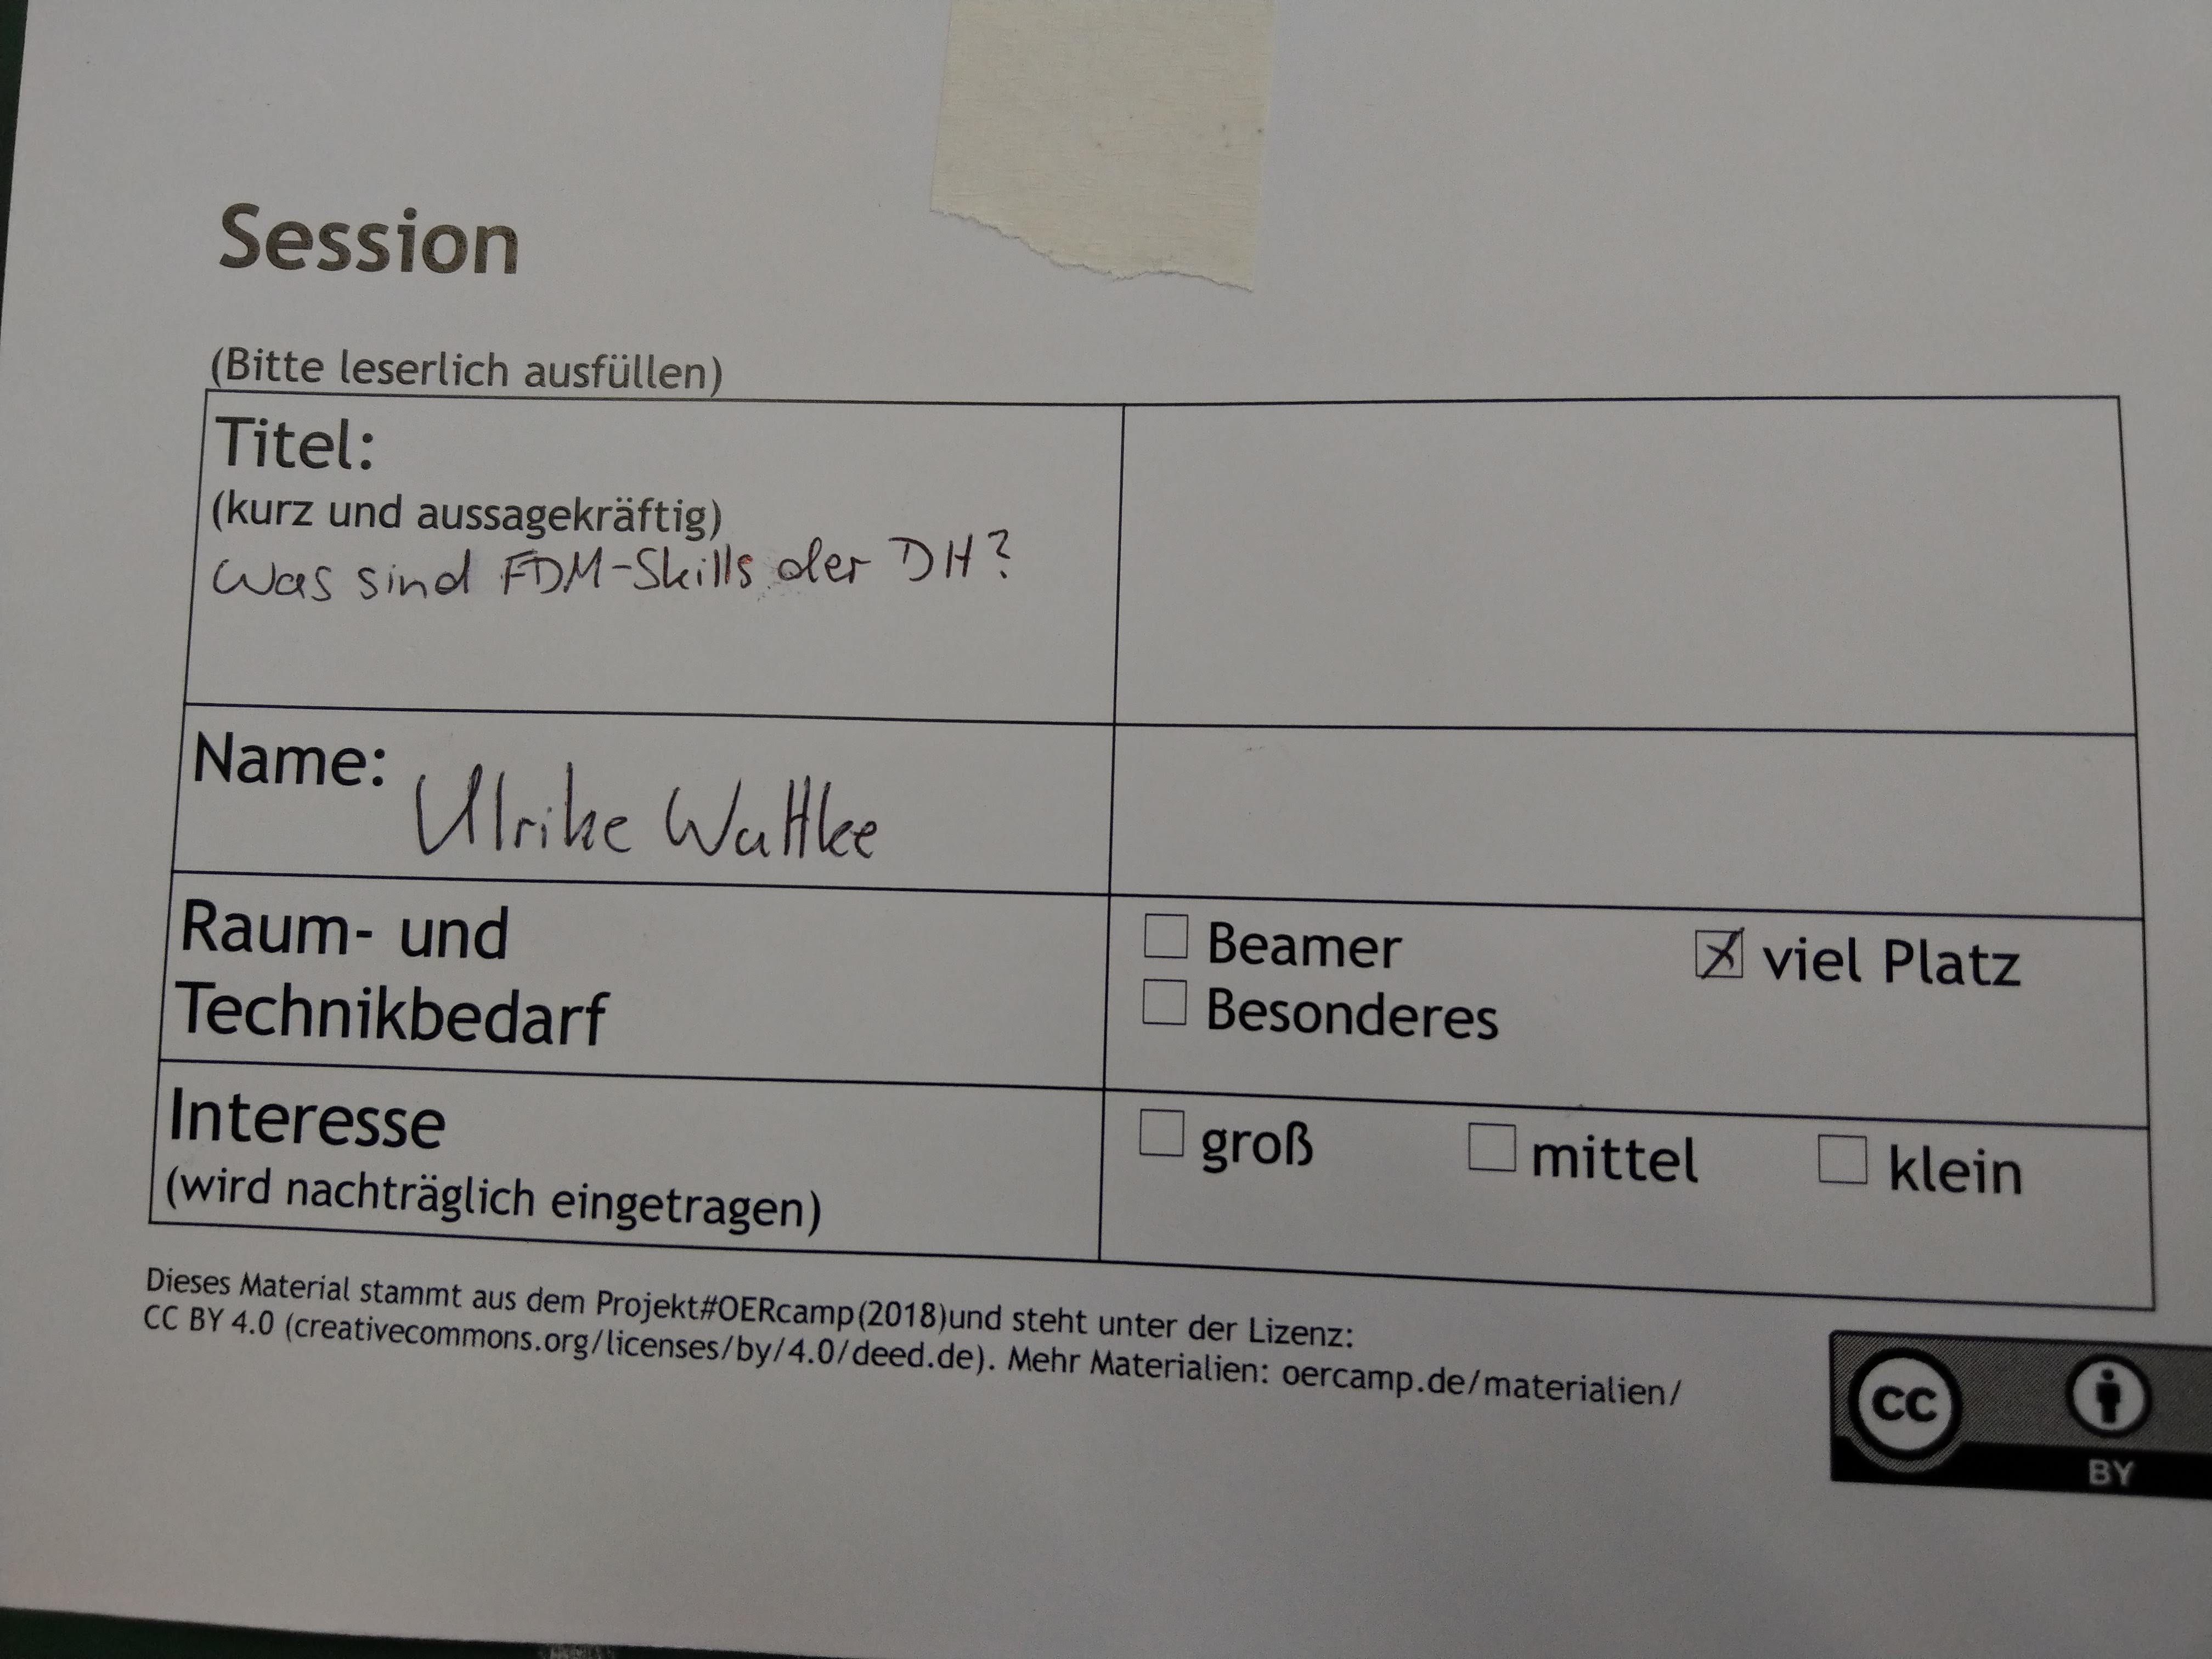 Session
(Bitte leserlich ausfüllen)
Titel:
(kurz und aussagekräftig)
Was sind FDM-Skills der DH?
Name: Ulrike Wuttke
Raum- und
Technikbedarf
Beamer
viel Platz
Besonderes
Interesse
(wird nachträglich eingetragen)
groß
mittel
klein
Dieses Material stammt aus dem Projekt#OERcamp(2018)und steht unter der Lizenz:
CC BY 4.0 (creativecommons.org/licenses/by/4.0/deed.de). Mehr Materialien: oercamp.de/materialien/
CC
BY